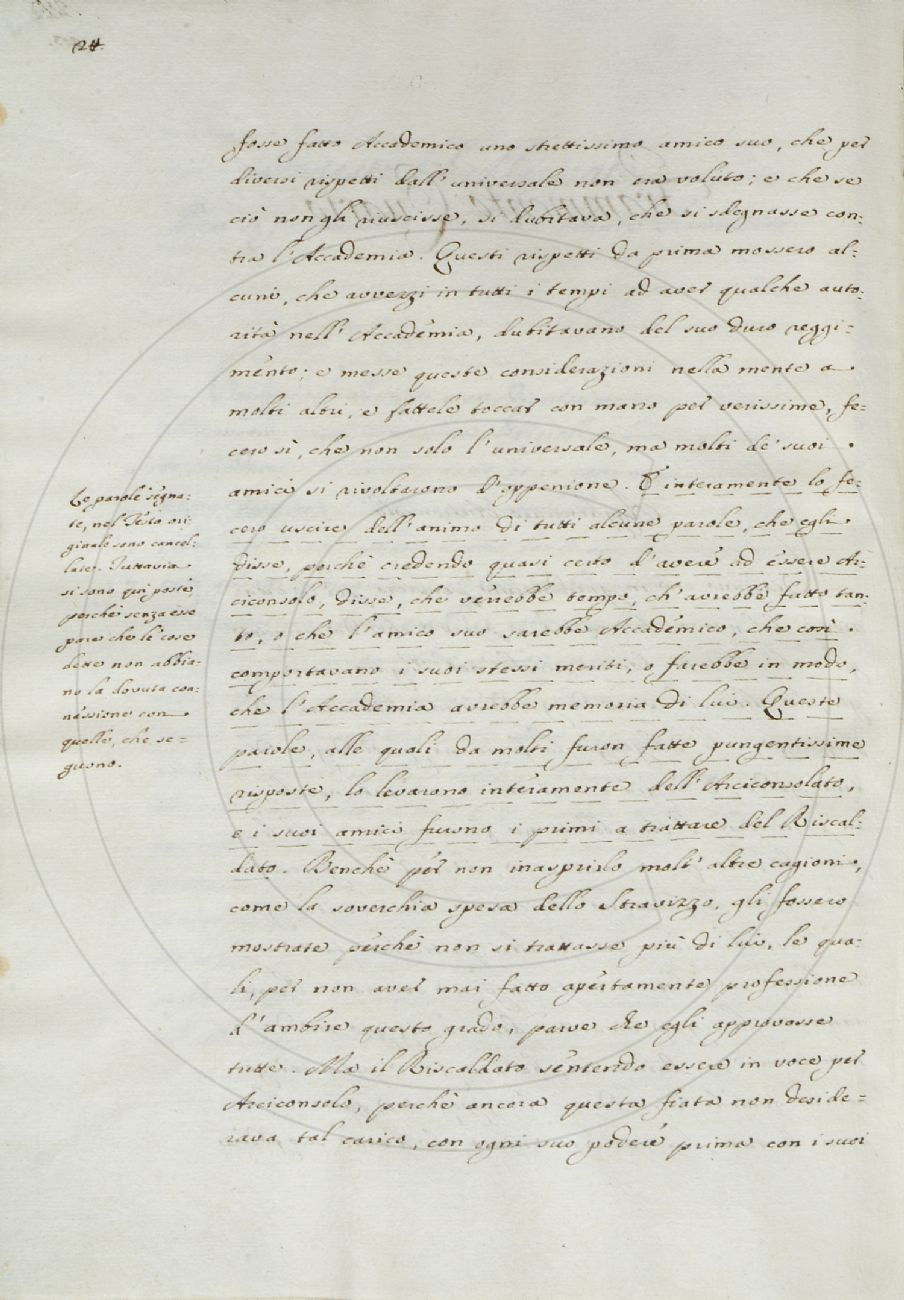 24.
fosse fatto Accademico uno strettissimo amico suo, che per
diversi rispetti dall'universale non era voluto; e che se
ciò non gli riuscisse, si dubitava, che si sdegnasse con:
tra l'Accademia. Questi rispetti da prima mossero al:
cuni, che avvezzi in tutti i tempi ad aver qualche auto:
rità nell'Accademia, dubitavano del suo duro reggi:
mento; e messe queste considerazioni nella mente a
molti altri, e fattele toccar con mano per verissime, fe=
cero sì, che non solo l'universale, ma molti de' suoi
amici si rivoltarono d'oppenione. E interamente lo fe:
cero uscire dell'animo di tutti alcune parole, che egli
disse, perchè credendo quasi certo d'avere ad essere Ar:
ciconsolo, disse, che verrebbe tempo, ch'avrebbe fatto tan:
to, o che l'amico suo sarebbe Accademico, che così
comportavano i suoi stessi meriti, o farebbe in modo,
che l'Accademia avrebbe memoria di lui. Queste
parole, alle quali da molti furon fatte pungentissime
risposte, lo levarono interamente dell'Arciconsolato,
e i suoi amici furno i primi a trattare del Riscal:
dato. Benchè per non inasprirlo molt'altre cagioni,
come la soverchia spesa dello Stravizzo, gli fossero
mostrate perchè non si trattasse più di lui, le qua:
li, per non aver mai fatto apertamente professione
d'ambire questo grado, parve che egli approvasse
tutte. Ma il Riscaldato sentendo essere in voce per
Arciconsolo, perchè ancora questa fiata non deside=
rava tal carico, con ogni suo potere prima con i suoi
Le parole segna:
te, nel Testo ori:
ginale sono cancel:
late. Tuttavia
si sono qui poste,
perchè senza esse
pare che le cose
dette non abbia:
no la dovuta con:
nessione con
quelle, che se=
guono.